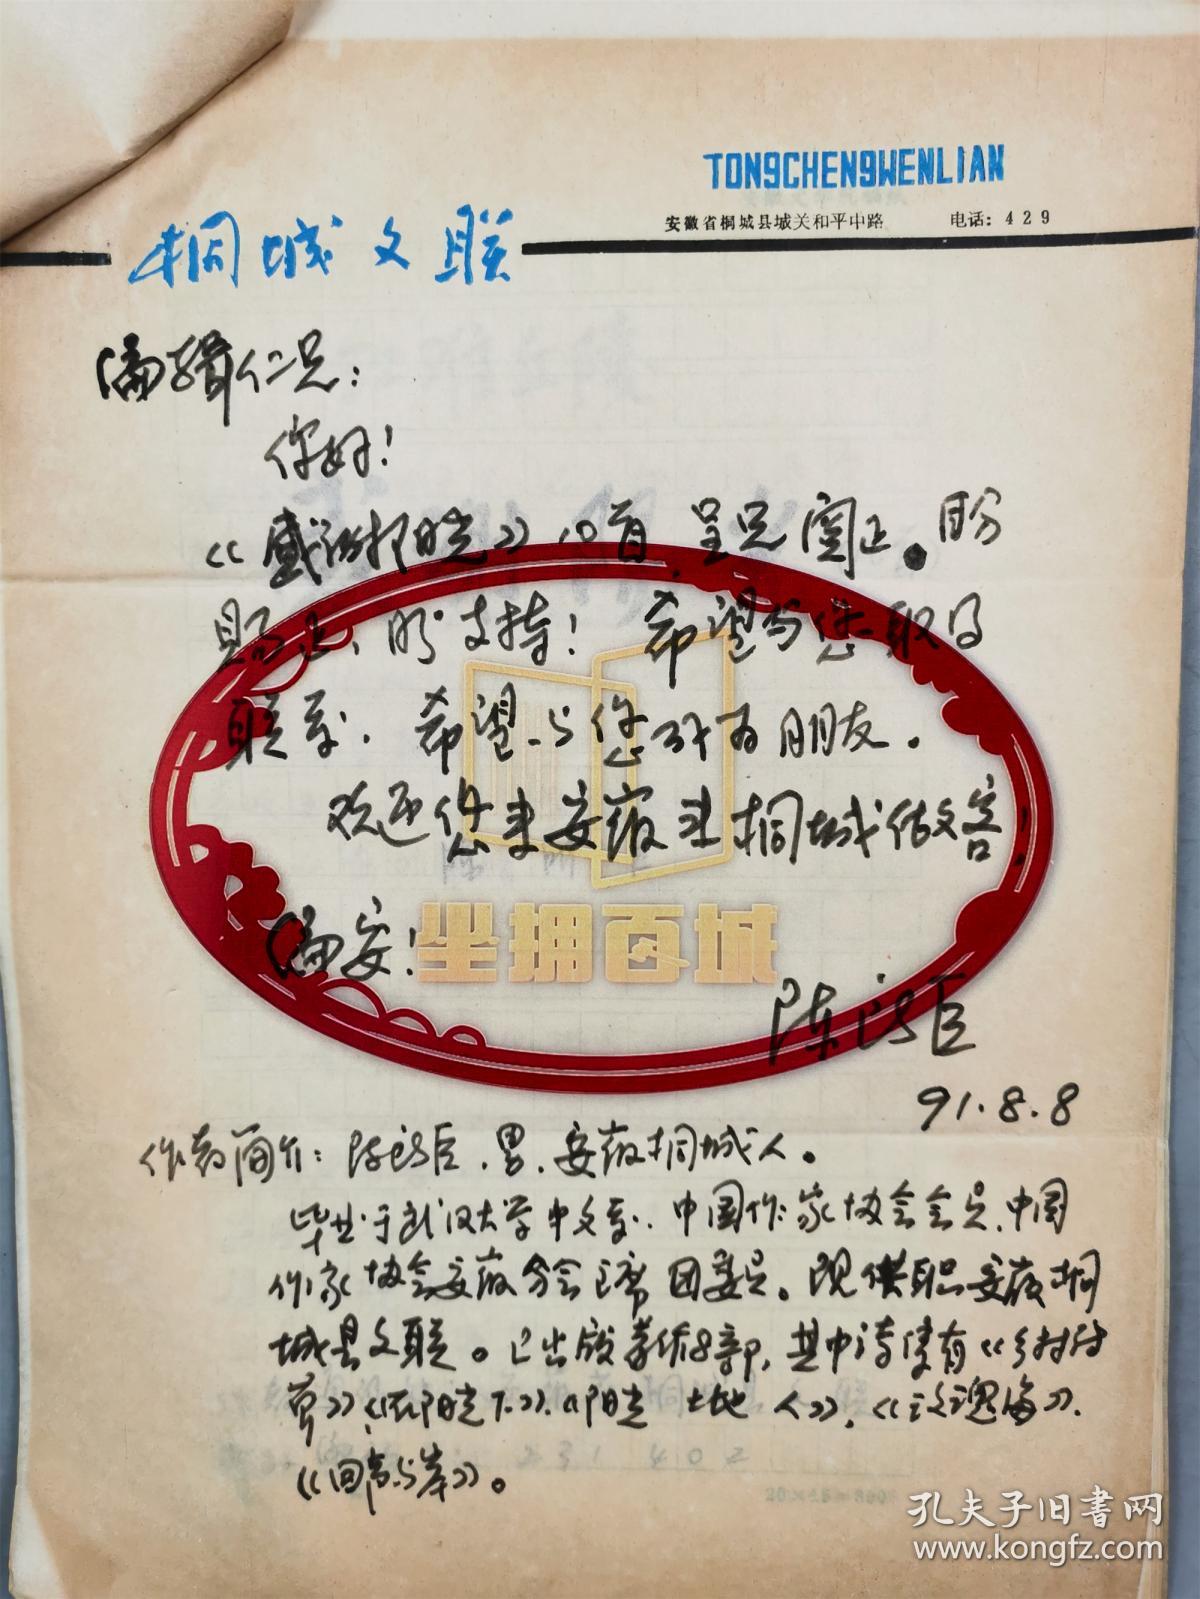 TONGCHENGWENLIAN
安徽省桐城县城关和平中路 电话：429
桐城文联
编辑仁兄：
你好！
《感谢阳光》10首，呈兄审正。盼
赐正，盼支持！希望与您取得
联系，希望与您
为朋友。
欢迎您来安徽来桐城做客！
编安！
坐拥百城
陈所巨
91.8.8
作者简介：陈所巨，男，安徽桐城人。
毕业于武汉大学中文系，中国作家协会会员，中国
作家协会安徽分会主席团委员。现供职安徽桐
城县文联。已出版著作8部，其中诗集有《乡村诗
草》《在阳光下》《阳光·土地·人》，《玫瑰海》，
《回声与岸》。
231402
孔夫子旧书网
www.kongfz.com